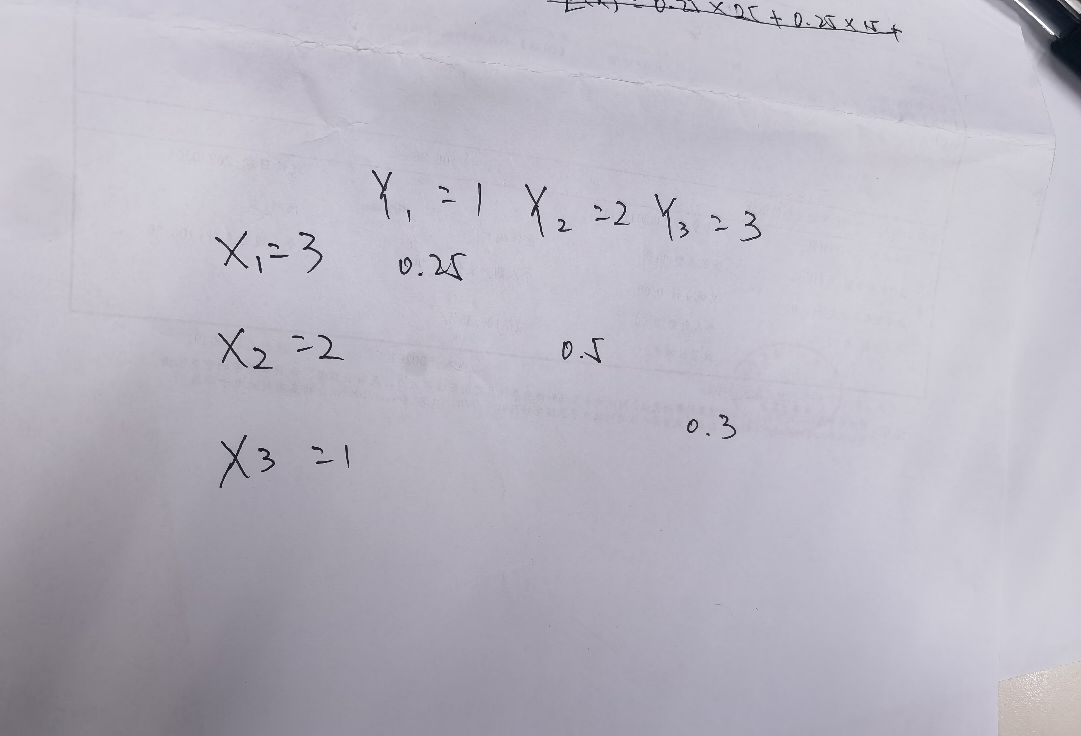 E(X) = 0.25 × 25 + 0.25 × 15 +
Y₁ = 1 Y₂ = 2 Y₃ = 3
X₁ = 3 0.25
X₂ = 2 0.5
0.3
X₃ = 1